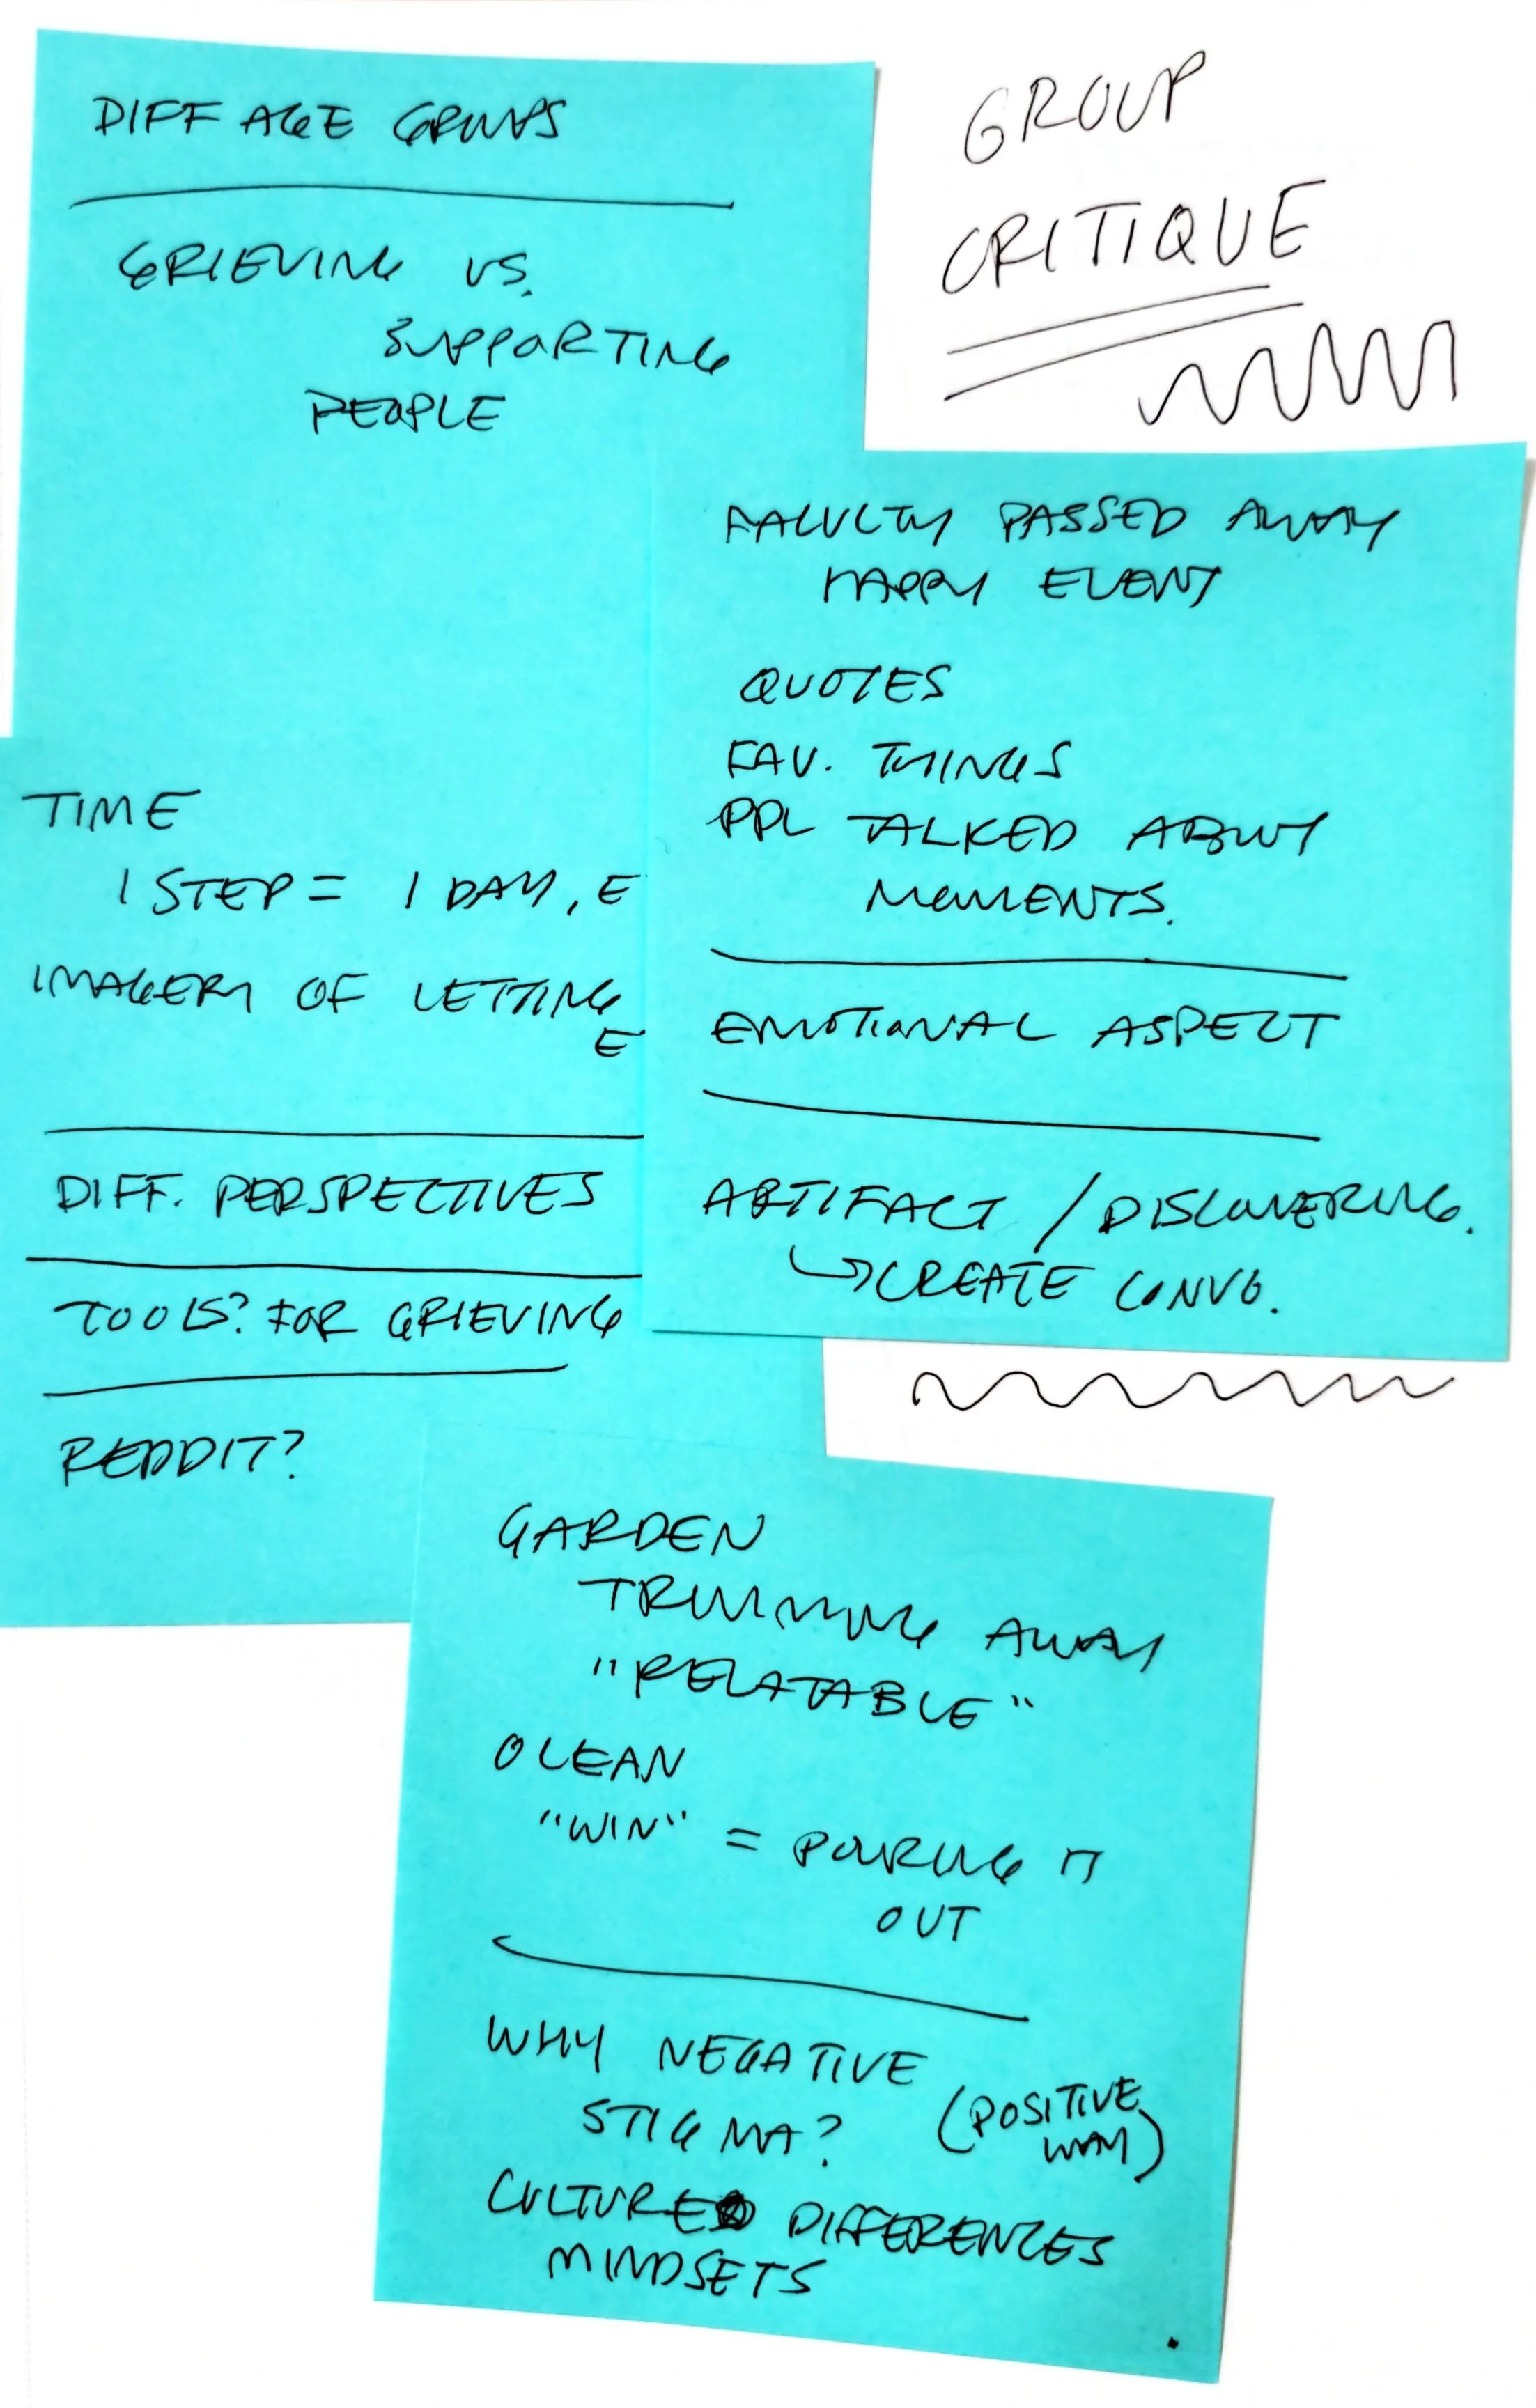 DIFF AGE GROUPS
GRIEVING VS.
SUPPORTING
PEOPLE
GROUP
CRITIQUE
FACULTY PASSED AWAY
HAPPY EVENT
QUOTES
FAV. THINGS
PPL TALKED ABOUT
MOMENTS.
EMOTIONAL ASPECT
ARTIFACT / DISCOVERING.
CREATE CONVO.
TIME
1 STEP = 1 DAY, E
IMAGERY OF LETTING
E
DIFF. PERSPECTIVES
TOOLS? FOR GRIEVING
REDDIT?
GARDEN
TRIMMING AWAY
"RELATABLE"
OCEAN
"WIN" = POURING IT
OUT
WHY NEGATIVE
STIGMA? (POSITIVE
WAY)
CULTURE DIFFERENCES
MINDSETS